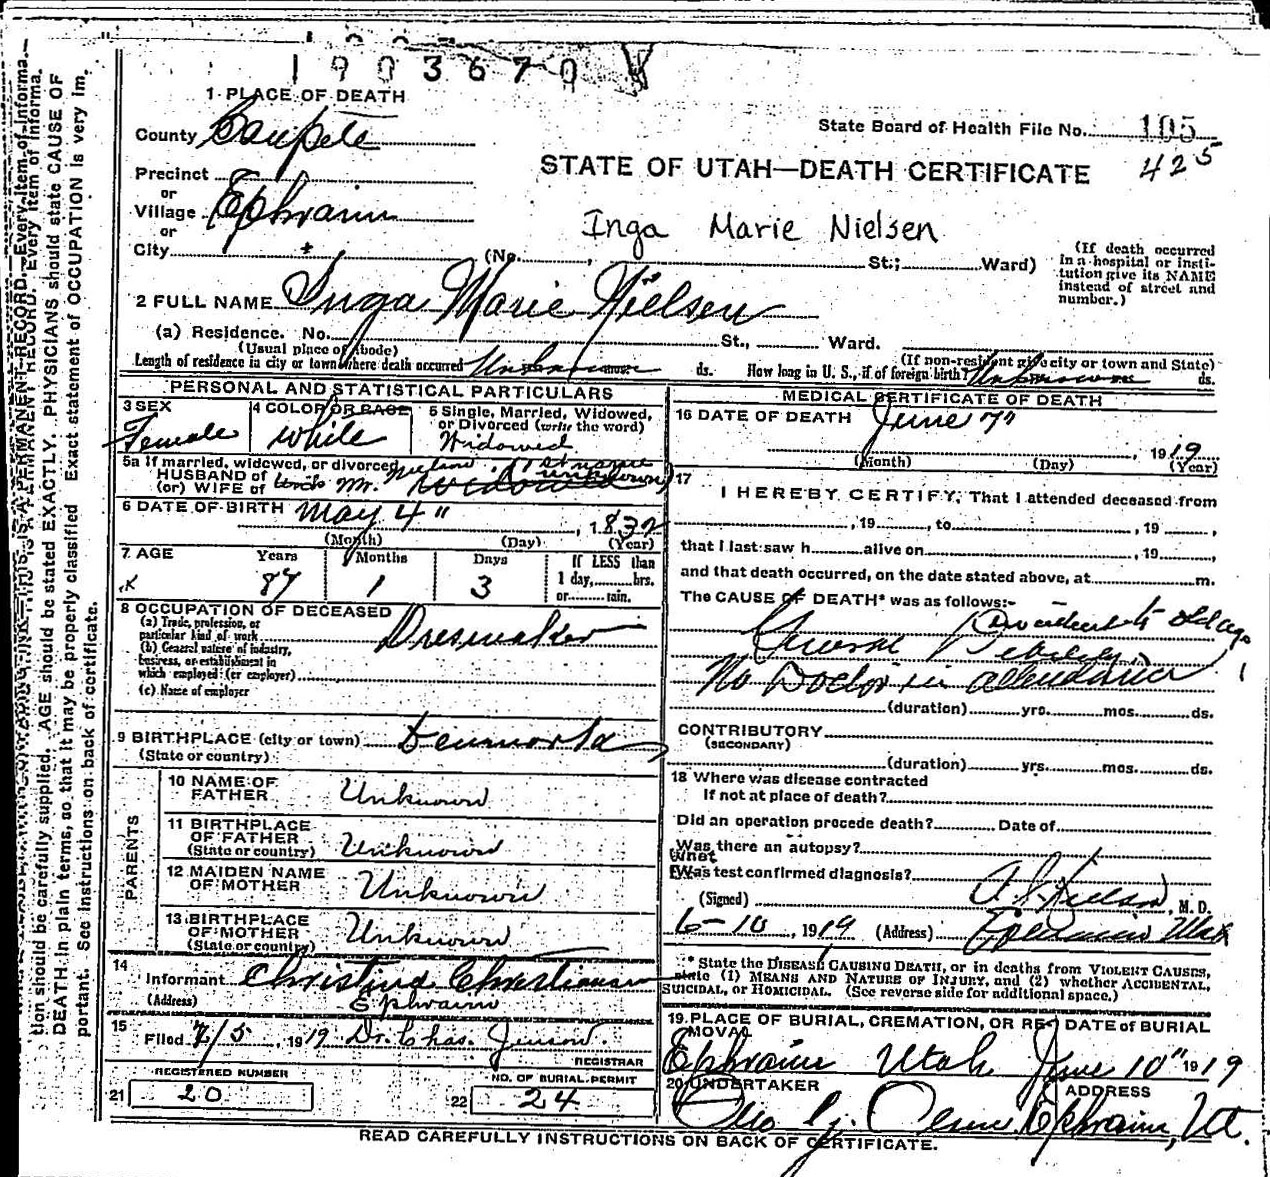 1903670
1 PLACE OF DEATH
County Sanpete
State Board of Health File No. 105
425
STATE OF UTAH—DEATH CERTIFICATE
Precinct
or
Village Ephraim
or
City (No. St.; Ward)
Inga Marie Nielsen
(If death occurred
in a hospital or insti-
tution give its NAME
instead of street and
number.)
2 FULL NAME Inga Marie Nielsen
(a) Residence. No. St., Ward.
(Usual place of abode) (If non-resident give city or town and State)
Length of residence in city or town where death occurred Unknown ds. How long in U. S., if of foreign birth? Unknown ds.
PERSONAL AND STATISTICAL PARTICULARS
3 SEX
Female
4 COLOR OR RACE
White
5 Single, Married, Widowed,
or Divorced (write the word)
Widowed
5a If married, widowed, or divorced
HUSBAND of
(or) WIFE of Mr.
6 DATE OF BIRTH May 4", 1832
(Month) (Day) (Year)
7 AGE Years Months Days If LESS than
1 day, hrs.
or min.
87 1 3
8 OCCUPATION OF DECEASED
(a) Trade, profession, or
particular kind of work Dressmaker
(b) General nature of industry,
business, or establishment in
which employed (or employer)
(c) Name of employer
9 BIRTHPLACE (city or town)
(State or country)
PARENTS
10 NAME OF
FATHER Unknown
11 BIRTHPLACE
OF FATHER
(State or country) Unknown
12 MAIDEN NAME
OF MOTHER Unknown
13 BIRTHPLACE
OF MOTHER
(State or country) Unknown
14
Informant Christina Christiansen
(Address) Ephraim
15
Filed 7/5, 1919 Dr. Chas. Jenson.
REGISTRAR
REGISTERED NUMBER
21 20
NO. OF BURIAL PERMIT
22 24
MEDICAL CERTIFICATE OF DEATH
16 DATE OF DEATH June 7", 1919
(Month) (Day) (Year)
17
I HEREBY CERTIFY, That I attended deceased from
, 19 , to , 19 ,
that I last saw h alive on , 19 ,
and that death occurred, on the date stated above, at m.
The CAUSE OF DEATH* was as follows:-
old age
General Debility
No Doctor in attendance
(duration) yrs. mos. ds.
CONTRIBUTORY
(SECONDARY)
(duration) yrs. mos. ds.
18 Where was disease contracted
If not at place of death?
Did an operation precede death? Date of
Was there an autopsy?
What
Was test confirmed diagnosis?
(Signed) , M. D.
6-10, 1919 (Address) Ephraim Utah
* State the DISEASE CAUSING DEATH, or in deaths from VIOLENT CAUSES,
state (1) MEANS AND NATURE OF INJURY, and (2) whether ACCIDENTAL,
SUICIDAL, or HOMICIDAL. (See reverse side for additional space.)
19 PLACE OF BURIAL, CREMATION, OR RE-
MOVAL DATE of BURIAL
Ephraim Utah June 10" 1919
20 UNDERTAKER ADDRESS
Ephraim, Ut.
READ CAREFULLY INSTRUCTIONS ON BACK OF CERTIFICATE.
tion should be carefully supplied. AGE should be stated EXACTLY. PHYSICIANS should state CAUSE OF
DEATH in plain terms, so that it may be properly classified Exact statement of OCCUPATION is very im.
portant. See instructions on back of certificate.